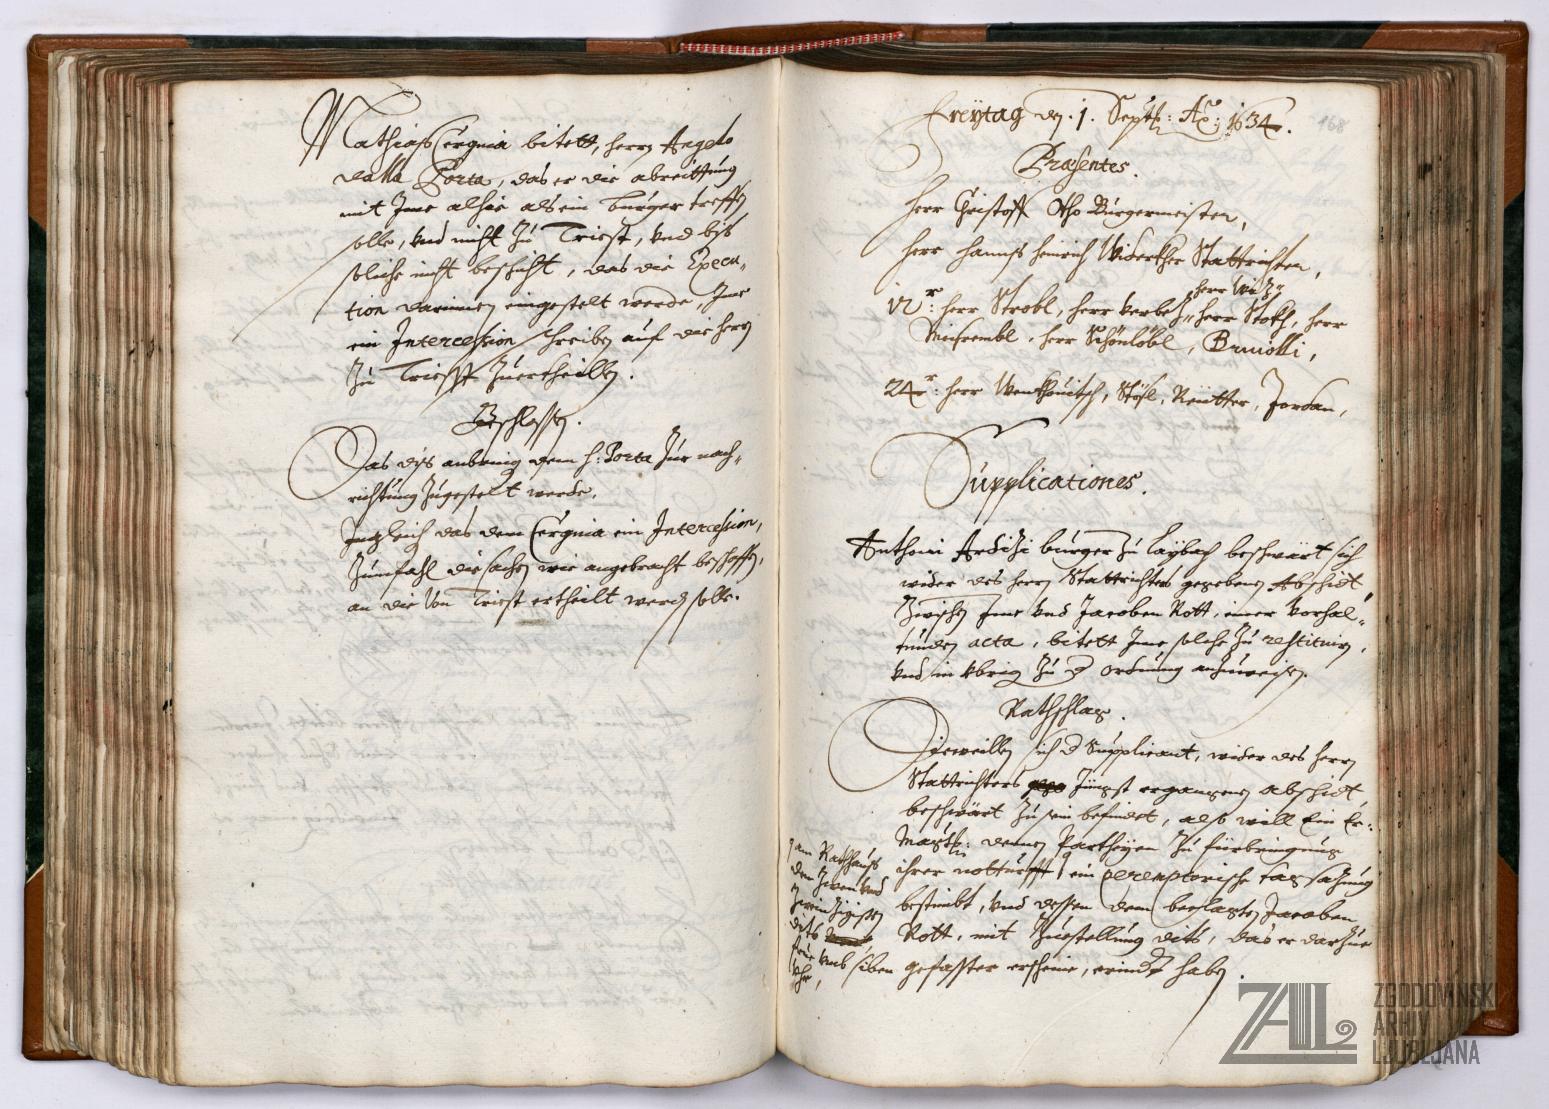 Mathias Cergnia bitett, herrn Angelo
dalla Porta, das er die abreittung
mit Jme alhie als ein burger treffen
solle, vnd nicht zu Triest, vnd biß
solches nicht beschicht, das die Execu-
tion darinnen eingestelt werde, Jme
ein Intercession schreiben auf die herrn
zu Triesst zuertheillen.
Beschlossen.
Das diß anbringen dem h: Porta zur nach-
richtung zugestelt werde.
Jngleich das dem Cergnia ein Intercession,
zumfahl die sachen wie angebracht beschaffen,
an die von Triest ertheilt werden solle.
Freÿtag den .1. Septb: Aõ: 1634.
168
Præsentes.
Herr Christoff Otho Burgermeister,
Herr Hannß Heinrich Widerkher Stattrichter,
herr
12r: herr Strobl, herr Verbez, herr Stokh, herr
herr Schönlöbl,
24r: herr Wenkhouitsch, Stößl, Reütter, Jordan,
Supplicationes.
Anthoni Ardizi burger zu Laÿbach beschwärt sich
wider des herrn Stattrichters gegebenen Abschidt,
zwischen Jme vnd Jacoben Rott, einer vorhal-
tunden acta, bitett Jme solche zu restituirn,
vnd in vbrig zu d ordnung anzuweisen.
Rathschlag.
Dieweillen sich d Supplicant, wider des herrn
Stattrichters jüngst ergangenen abschidt
beschwärt zu sein befindet, alß will Ein Er:
Magst: denen Partheÿen zu fürbringung
ihrer notturfft ein peremptorische tagsatzung
bestimbt, vnd dessen dem beclagten Jacoben
Rott, mit zuestellung dits, das er darzue
gefasster erscheine, erindert haben.
am Rathhauß
den zwen vnd
zwainzigisten
dits
frue vmb siben
Vhr,
ZAL
ZGODOVINSKI
ARHIV
LJUBLJANA